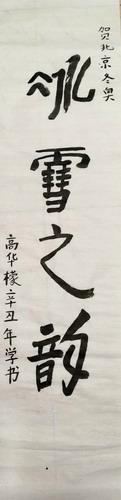 贺北京冬奥
冰雪之韵
高华檬辛丑年学书